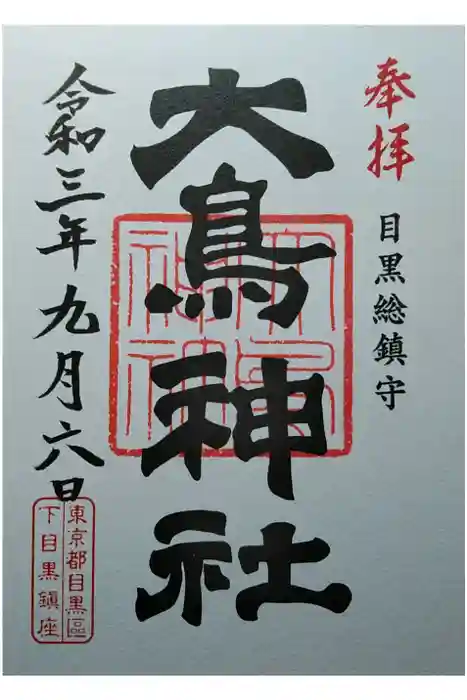 奉拝
目黒総鎮守
大鳥神社
大鳥
神社
令和三年九月六日
東京都目黒區
下目黒鎮座